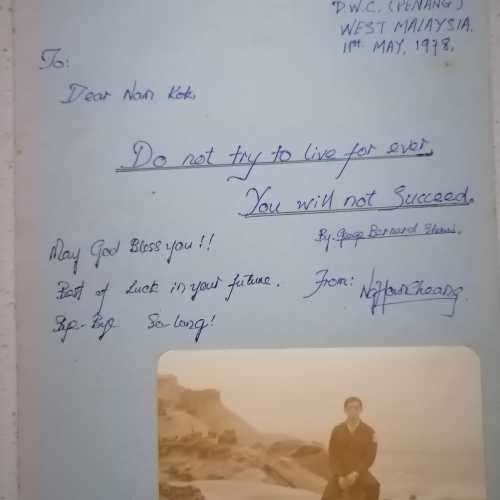 D.W.C. (PENANG)
WEST MALAYSIA.
11th MAY, 1978.
To:
Dear Nam Kok,
Do not try to live for ever,
You will not Succeed.
By. George Bernard Shaw.
May God Bless you!!
Best of Luck in your future.
From:
Bye-Bye So-long!